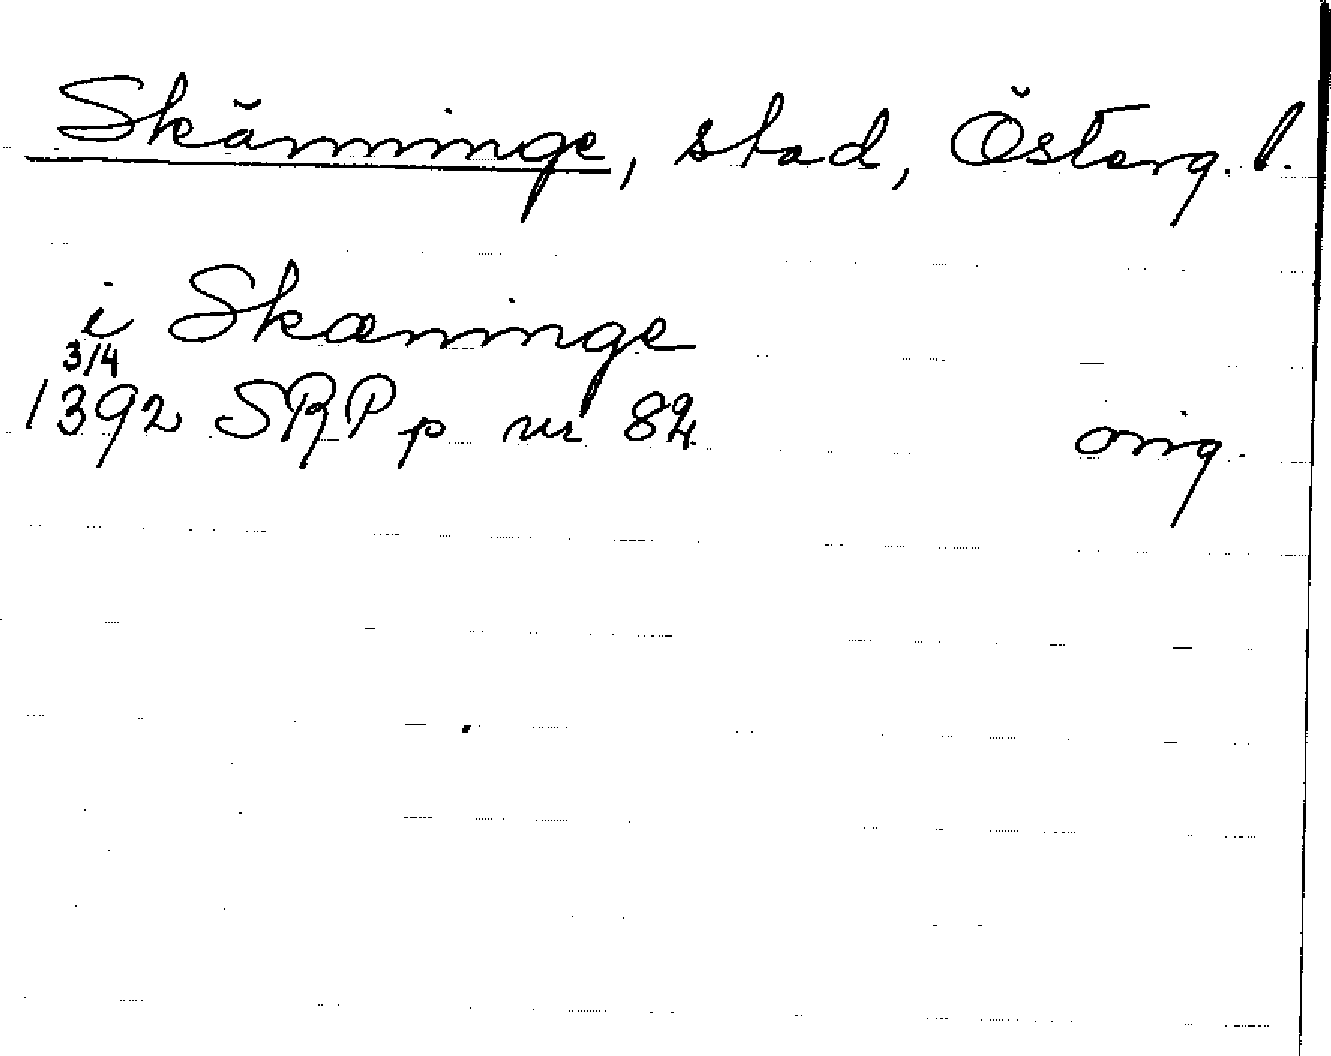 Skänninge, stad, Österg. l.
i Skæninge
3/4
1392 SRP p nr 82 orig.